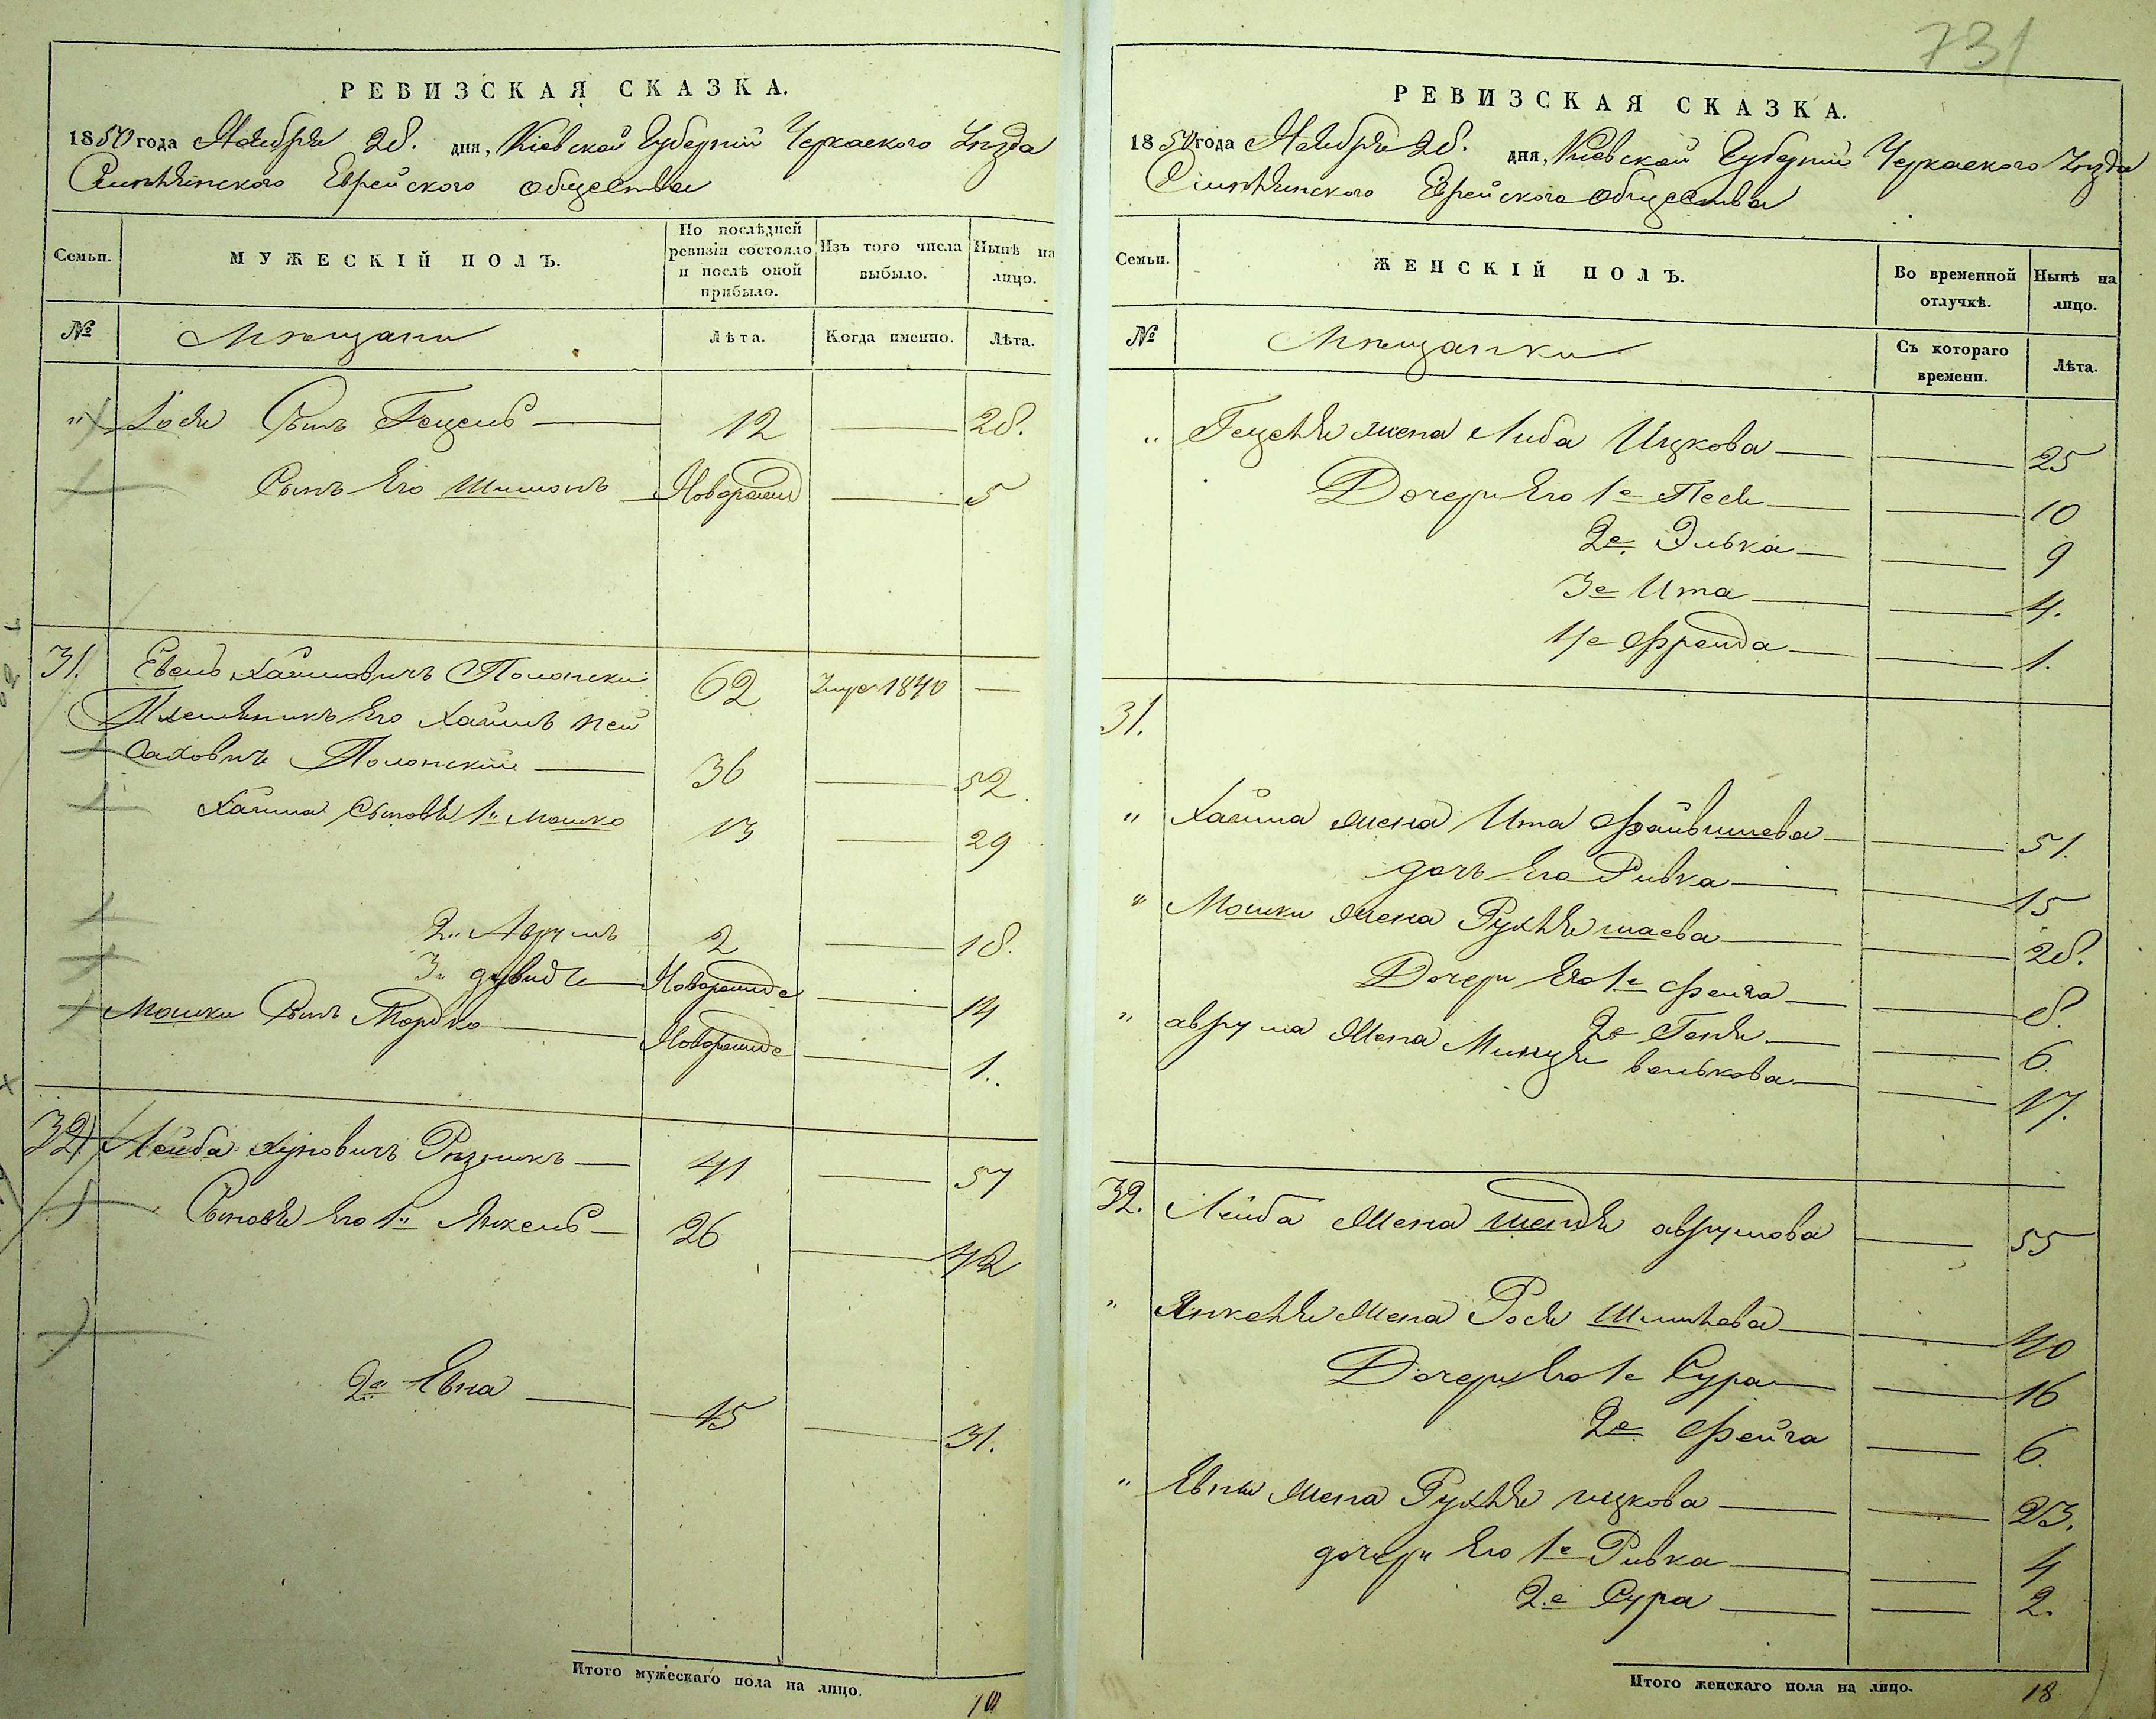 731
РЕВИЗСКАЯ СКАЗКА.
1850 года Ноября 28. дня, Кіевской Губерніи Черкаского Уѣзда
Смѣлянского Еврейского общества
Семьи.
МУЖЕСКІЙ ПОЛЪ.
По послѣдней ревизіи состояло и послѣ оной прибыло.
Изъ того числа выбыло.
Нынѣ на лицо.
№
Мѣщани
Лѣта.
Когда именно.
Лѣта.
" Іоси Сынъ Гецель 12 — 28.
Сынъ Его Шимонъ Новорожд — 5
31. Евель Хаимовичъ Полонски 62 Умре 1840 —
Племяникъ Его Хаимъ Пей
саховичъ Полонский 36 — 52.
Хаима Сыновя 1й Мошко 13 — 29
2й Аврумъ 2 — 18.
3й дувидъ Новорожде — 14
Мошки Сынъ Мордко Новорожде — 1.
32. Лейба Хуновичъ Рѣзникъ 41 — 57
Сыновя Его 1й Янкель 26 — 42
2й Евна 15 — 31.
Итого мужескаго пола на лицо. 10
РЕВИЗСКАЯ СКАЗКА.
1850 года Ноября 28. дня, Кіевской Губерніи Черкаского Уѣзда
Смѣлянского Еврейского общества
Семьи.
ЖЕНСКІЙ ПОЛЪ.
Во временной отлучкѣ.
Нынѣ на лицо.
№
Мѣщанки
Съ котораго времени.
Лѣта.
" Гецеля жена Либа Ицкова — 25
Дочери Его 1е Песя — 10
2е Элька — 9
3е Ита — 4.
4е Фрейда — 1.
31.
" Хаима жена Ита Файвишева — 51.
дочь Его Ривка — 15
" Мошки жена Рухля шаева — 28.
Дочери Его 1е Фейга — 8.
2е Геня — 6.
" аврума жена Миндя волькова — 17.
32. Лейба жена шендя аврумова — 55
" Янкеля жена Рося Шмилева — 40
Дочери Его 1е Сура — 16
2е Фейга — 6.
" Евны жена Рухля ицкова — 23.
дочери Его 1е Ривка — 4
2е Сура — 2.
Итого женскаго пола на лицо. 18